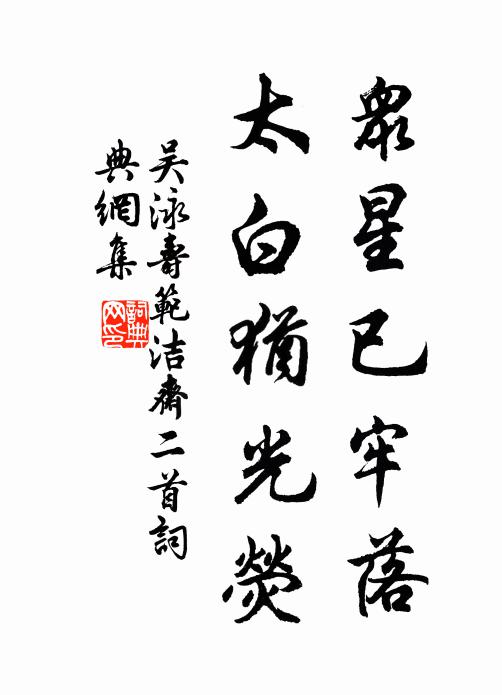 眾星已牢落
太白猶光熒
吴泳壽範洁齋二首詞
典網集
詞典
网印